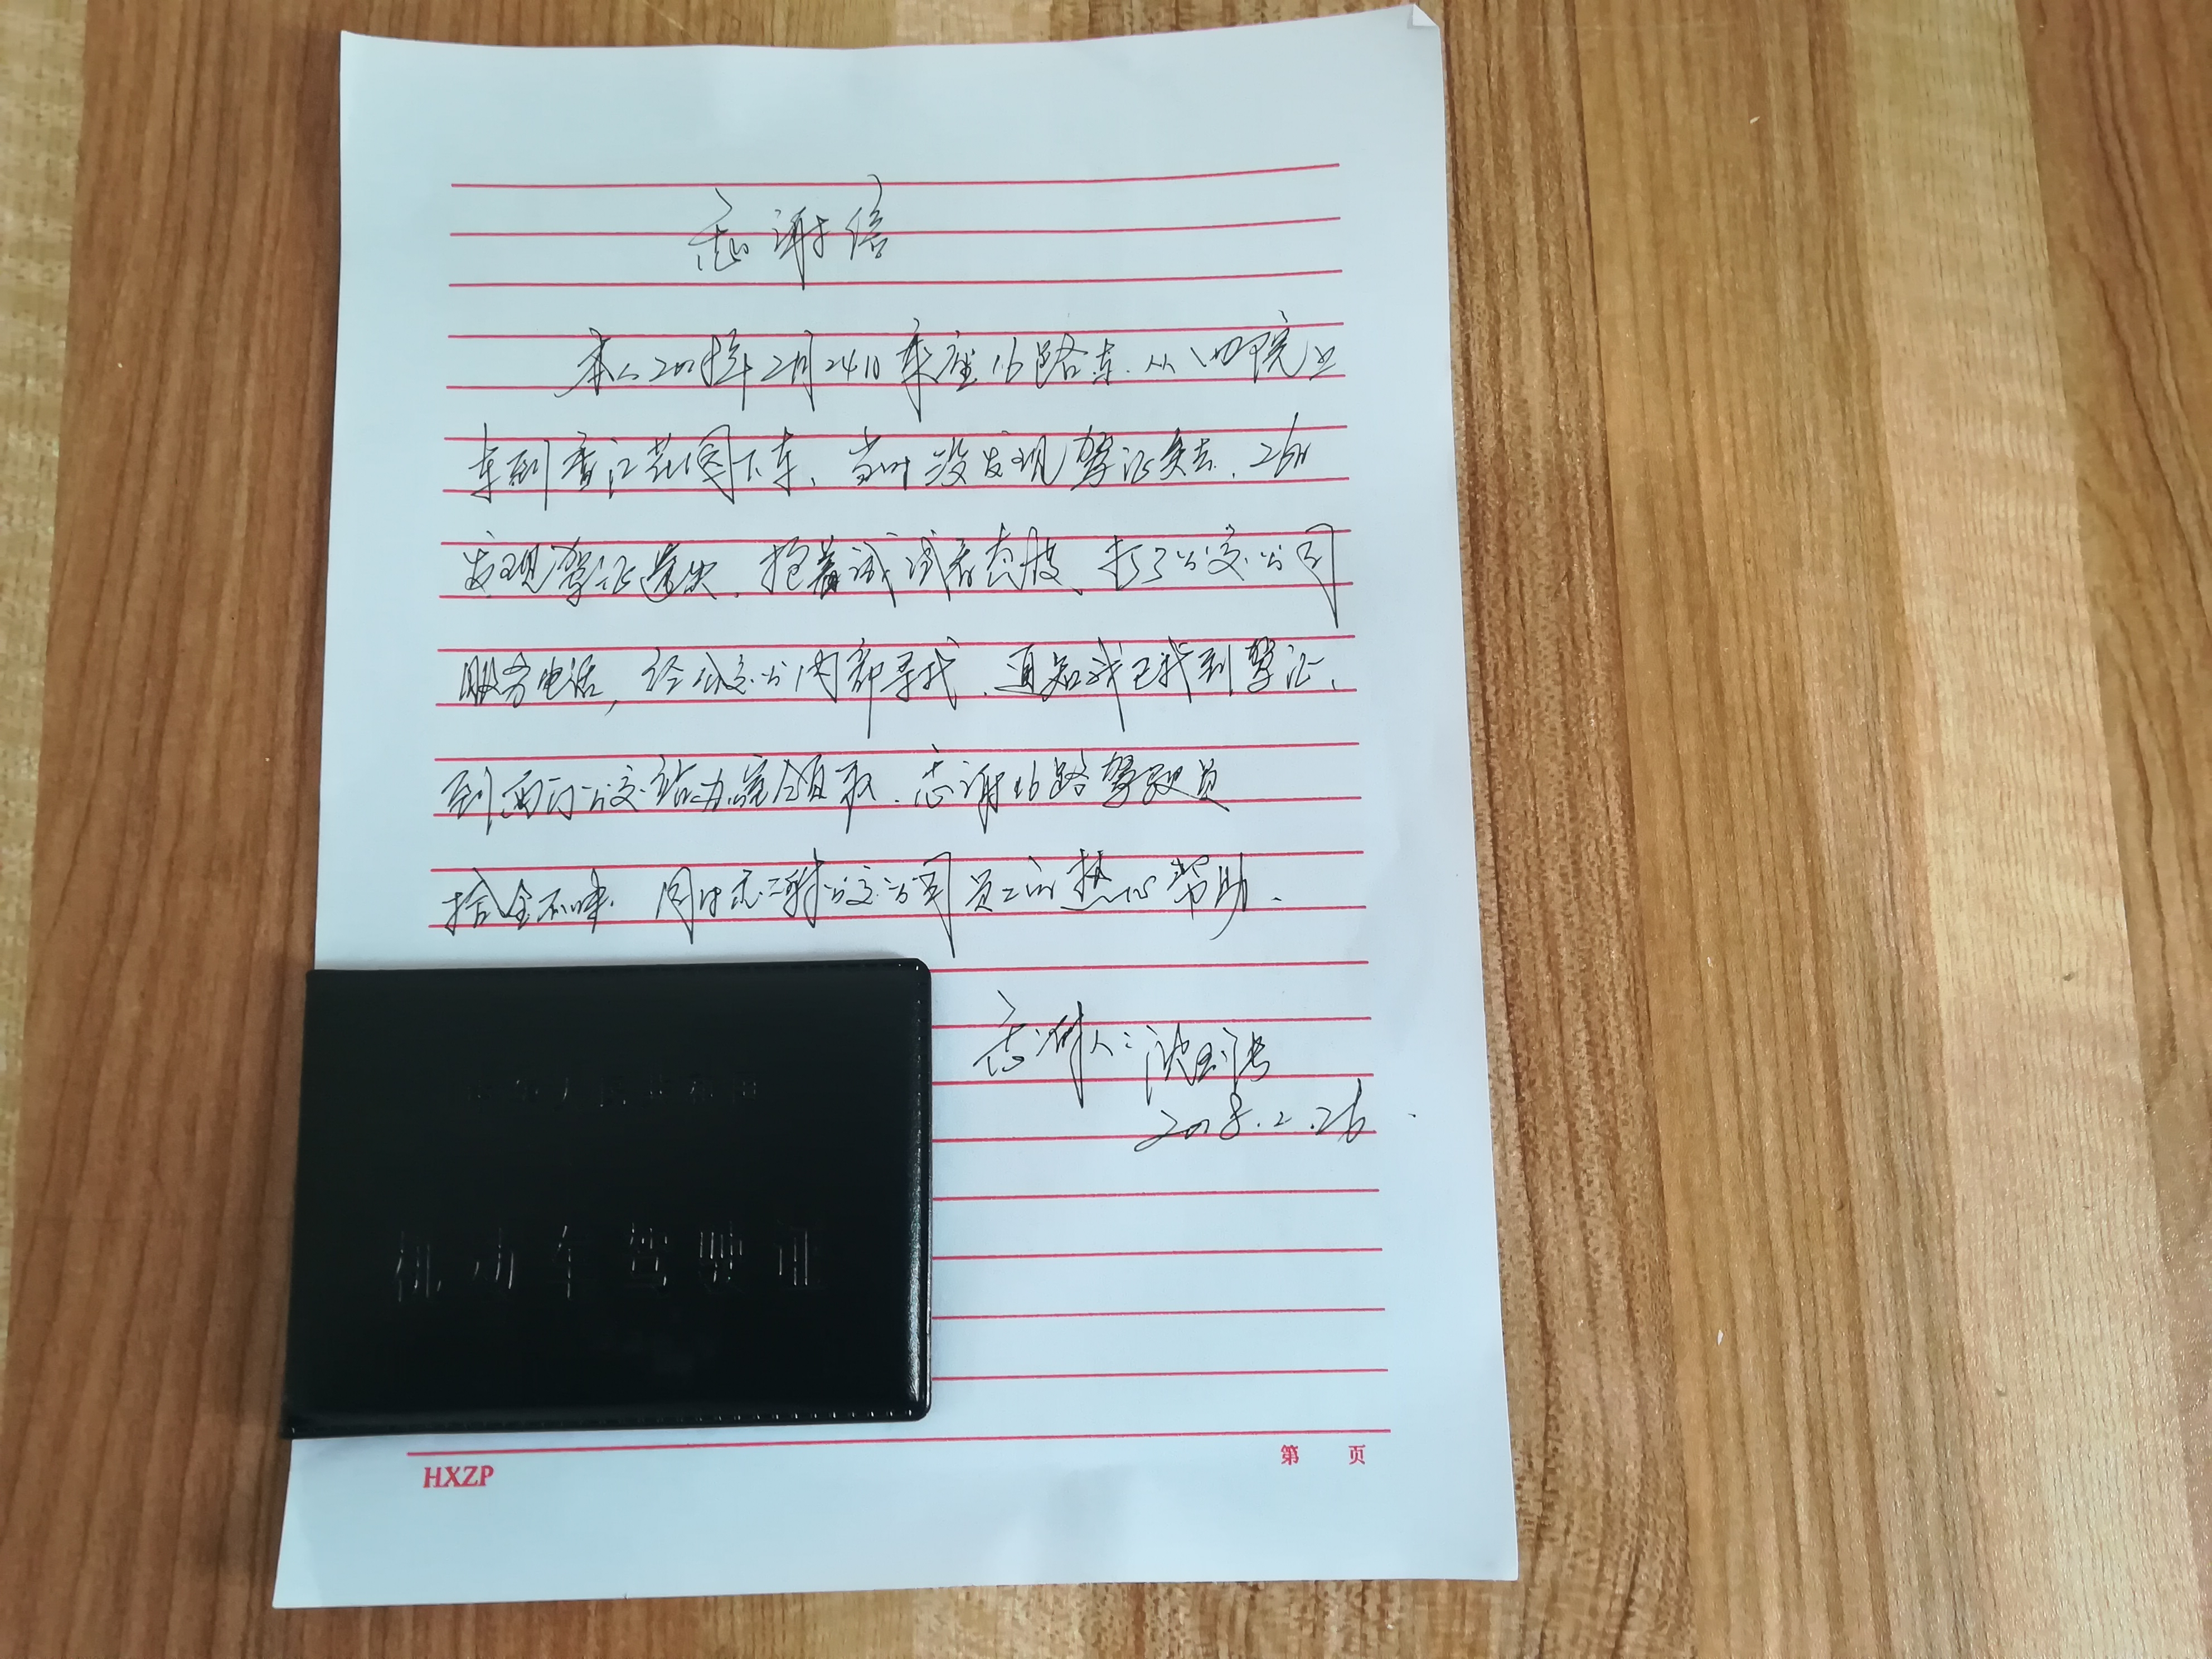 感谢信
本人2018年2月24日乘座16路车.从四院上
车到香江花园下车、当时没发现驾证失去.26日
发现驾证遗失.抱着试试看态度、打了公交公司
服务电话,经公交公司内部寻找.通知我已找到驾证、
到西门公交站办公室领取.感谢16路驾驶员
拾金不昧.同时感谢公交公司员工的热心帮助.
感谢人:
2018.2.26
中华人民共和国
机动车驾驶证
HXZP
第 页